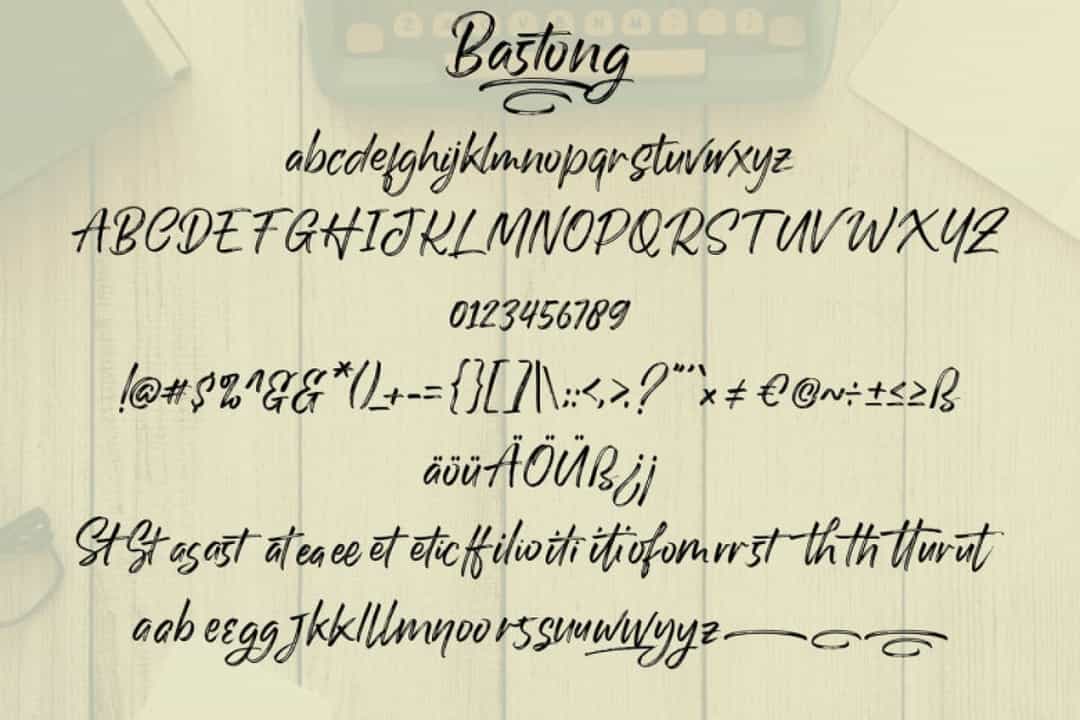 Bastong
abcdefghijklmnopqrstuvwxyz
ABCDEFGHIJKLMNOPQRSTUVWXYZ
0123456789
!@#$%^&&*()_+-={}[]|\:;<,>.?"'`x≠€@~÷±≤≥ß
äöüÄÖÜß¿¡
StSt asast at ea ee et etic ff ilio iti iti of om rr st th th tt ur ut
aab eεgg Jkklllmηoo rssuuwwyyz